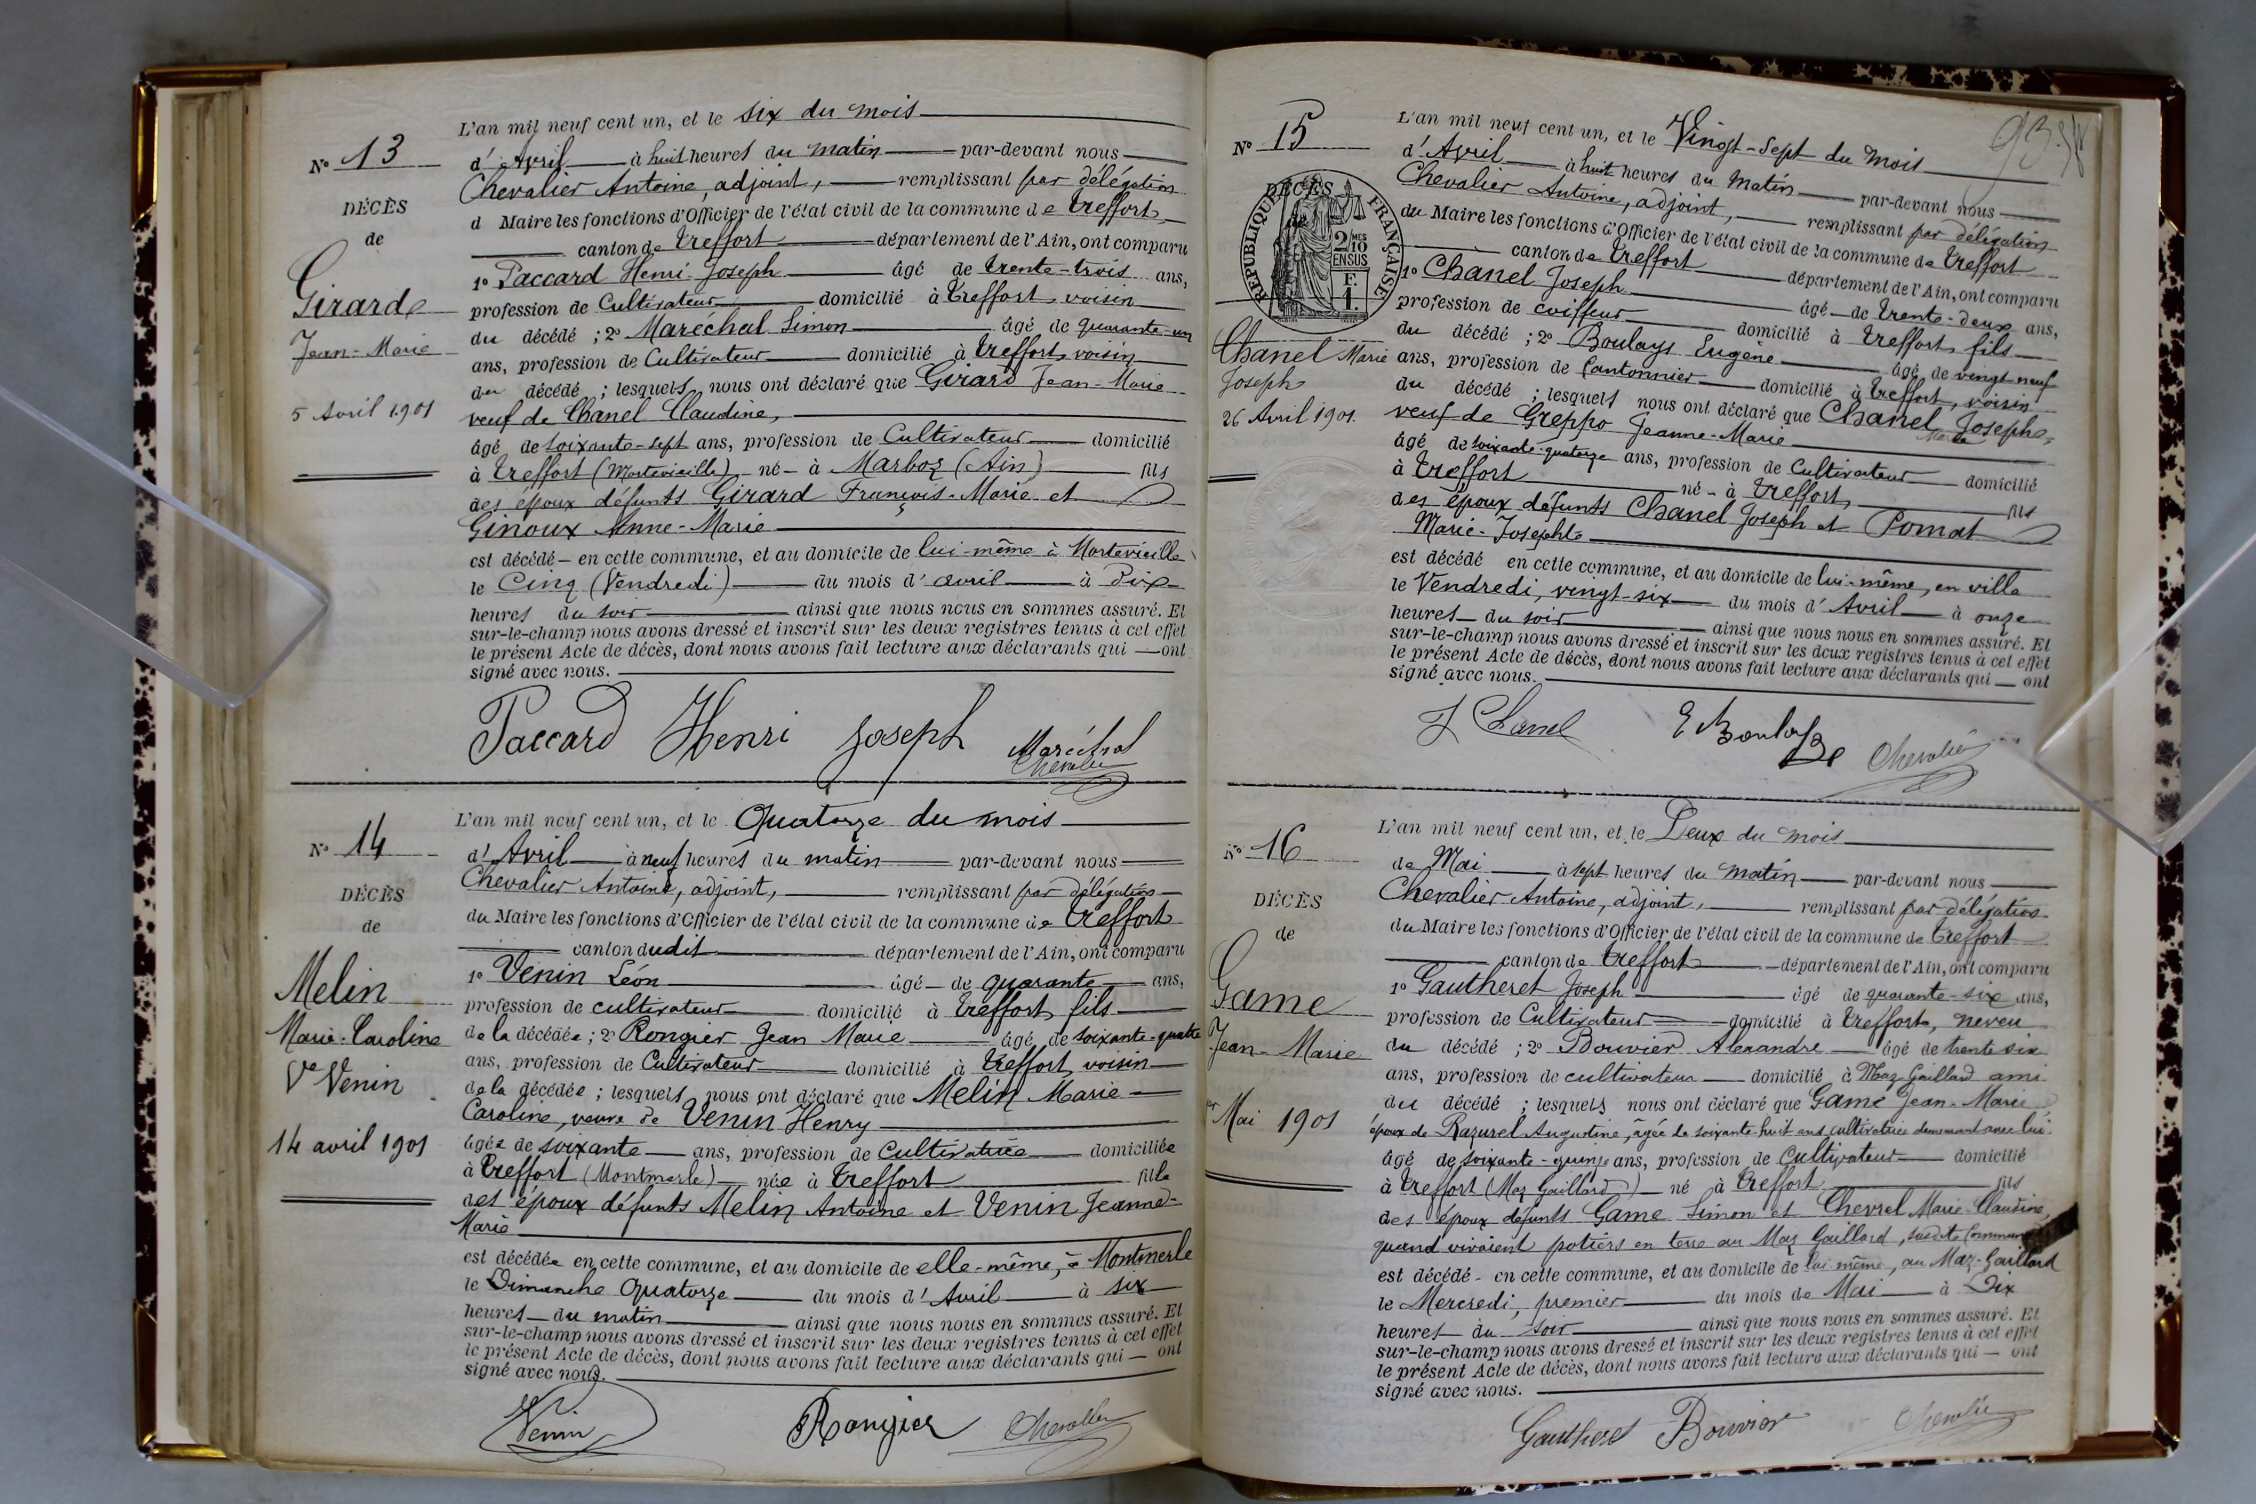 L'an mil neuf cent un, et le six du mois
N° 13
d'Avril à huit heures du matin par-devant nous
Chevalier Antoine, adjoint, remplissant par délégation
DÉCÈS
d Maire les fonctions d'Officier de l'état civil de la commune de Treffort,
de
canton de Treffort département de l'Ain, ont comparu
Girard
1° Paccard Henri Joseph âgé de trente-trois ans,
profession de Cultivateur domicilié à Treffort, voisin
Jean-Marie
du décédé ; 2° Maréchal Simon âgé de quarante-un
ans, profession de Cultivateur domicilié à Treffort, voisin
du décédé ; lesquels nous ont déclaré que Girard Jean-Marie
5 Avril 1901
veuf de Chanel Claudine,
âgé de soixante-sept ans, profession de Cultivateur domicilié
à Treffort (Mortevieille) né à Marboz (Ain) fils
des époux défunts Girard François-Marie et
Ginoux Anne-Marie
est décédé en cette commune, et au domicile de lui-même à Mortevieille
le Cinq (Vendredi) du mois d'avril à Dix
heures du soir ainsi que nous nous en sommes assuré. Et
sur-le-champ nous avons dressé et inscrit sur les deux registres tenus à cet effet
le présent Acte de décès, dont nous avons fait lecture aux déclarants qui ont
signé avec nous.
Paccard Henri Joseph Maréchal
Chevalier
L'an mil neuf cent un, et le Quatorze du mois
N° 14
d'Avril à neuf heures du matin par-devant nous
Chevalier Antoine, adjoint, remplissant par délégation
DÉCÈS
du Maire les fonctions d'Officier de l'état civil de la commune de Treffort
de
canton dudit département de l'Ain, ont comparu
Melin
1° Venin Léon âgé de quarante ans,
profession de cultivateur domicilié à Treffort fils
Marie-Caroline
de la décédée ; 2° Rongier Jean Marie âgé de soixante-quatre
ans, profession de Cultivateur domicilié à Treffort voisin
Ve Venin
de la décédée ; lesquels nous ont déclaré que Melin Marie
Caroline, veuve de Venin Henry
14 avril 1901
âgée de soixante ans, profession de Cultivatrice domiciliée
à Treffort (Montmerle) née à Treffort fille
des époux défunts Melin Antoine et Venin Jeanne-
Marie
est décédée en cette commune, et au domicile de elle-même, à Montmerle
le Dimanche Quatorze du mois d'Avril à six
heures du matin ainsi que nous nous en sommes assuré. Et
sur-le-champ nous avons dressé et inscrit sur les deux registres tenus à cet effet
le présent Acte de décès, dont nous avons fait lecture aux déclarants qui ont
signé avec nous.
Venin Rongier Chevalier
93
L'an mil neuf cent un, et le Vingt-Sept du mois
N° 15
d'Avril à huit heures du Matin par-devant nous
Chevalier Antoine, adjoint, remplissant par délégation
du Maire les fonctions d'Officier de l'état civil de la commune de Treffort
DÉCÈS
de
RÉPUBLIQUE FRANÇAISE
2 MES 10 EN SUS
F. 1.
canton de Treffort département de l'Ain, ont comparu
1° Chanel Joseph âgé de trente-deux ans,
profession de coiffeur domicilié à Treffort, fils
du décédé ; 2° Boulays Eugène âgé de vingt-neuf
Chanel Marie
ans, profession de Cantonnier domicilié à Treffort, voisin
Joseph
du décédé ; lesquels nous ont déclaré que Chanel Joseph
Marie
26 Avril 1901.
veuf de Greppo Jeanne-Marie
âgé de soixante-quatorze ans, profession de Cultivateur domicilié
à Treffort né à Treffort, fils
des époux défunts Chanel Joseph et Pomat
Marie-Josephte
est décédé en cette commune, et au domicile de lui-même, en ville
le Vendredi, vingt-six du mois d'Avril à onze
heures du soir ainsi que nous nous en sommes assuré. Et
sur-le-champ nous avons dressé et inscrit sur les deux registres tenus à cet effet
le présent Acte de décès, dont nous avons fait lecture aux déclarants qui ont
signé avec nous.
J Chanel E Boulays Chevalier
L'an mil neuf cent un, et le Deux du mois
N° 16
de Mai à sept heures du matin par-devant nous
Chevalier Antoine, adjoint, remplissant par délégation
DÉCÈS
du Maire les fonctions d'Officier de l'état civil de la commune de Treffort
de
canton de Treffort département de l'Ain, ont comparu
Game
1° Gautheret Joseph âgé de quarante-six ans,
profession de Cultivateur domicilié à Treffort, neveu
Jean-Marie
du décédé ; 2° Bouvier Alexandre âgé de trente six
ans, profession de cultivateur domicilié à Maz-Gaillard ami
du décédé ; lesquels nous ont déclaré que Game Jean-Marie
er Mai 1901
époux de Razurel Augustine, âgée de soixante-huit ans cultivatrice demeurant avec lui
âgé de soixante-quinze ans, profession de Cultivateur domicilié
à Treffort (Maz Gaillard) né à Treffort fils
des époux défunts Game Simon et Chevrel Marie-Claudine,
quand vivaient potiers en terre au Maz Gaillard, susdite Commune
est décédé en cette commune, et au domicile de lui même, au Maz-Gaillard
le Mercredi, premier du mois de Mai à Dix
heures du soir ainsi que nous nous en sommes assuré. Et
sur-le-champ nous avons dressé et inscrit sur les deux registres tenus à cet effet
le présent Acte de décès, dont nous avons fait lecture aux déclarants qui ont
signé avec nous.
Gautheret Bouvier Chevalier